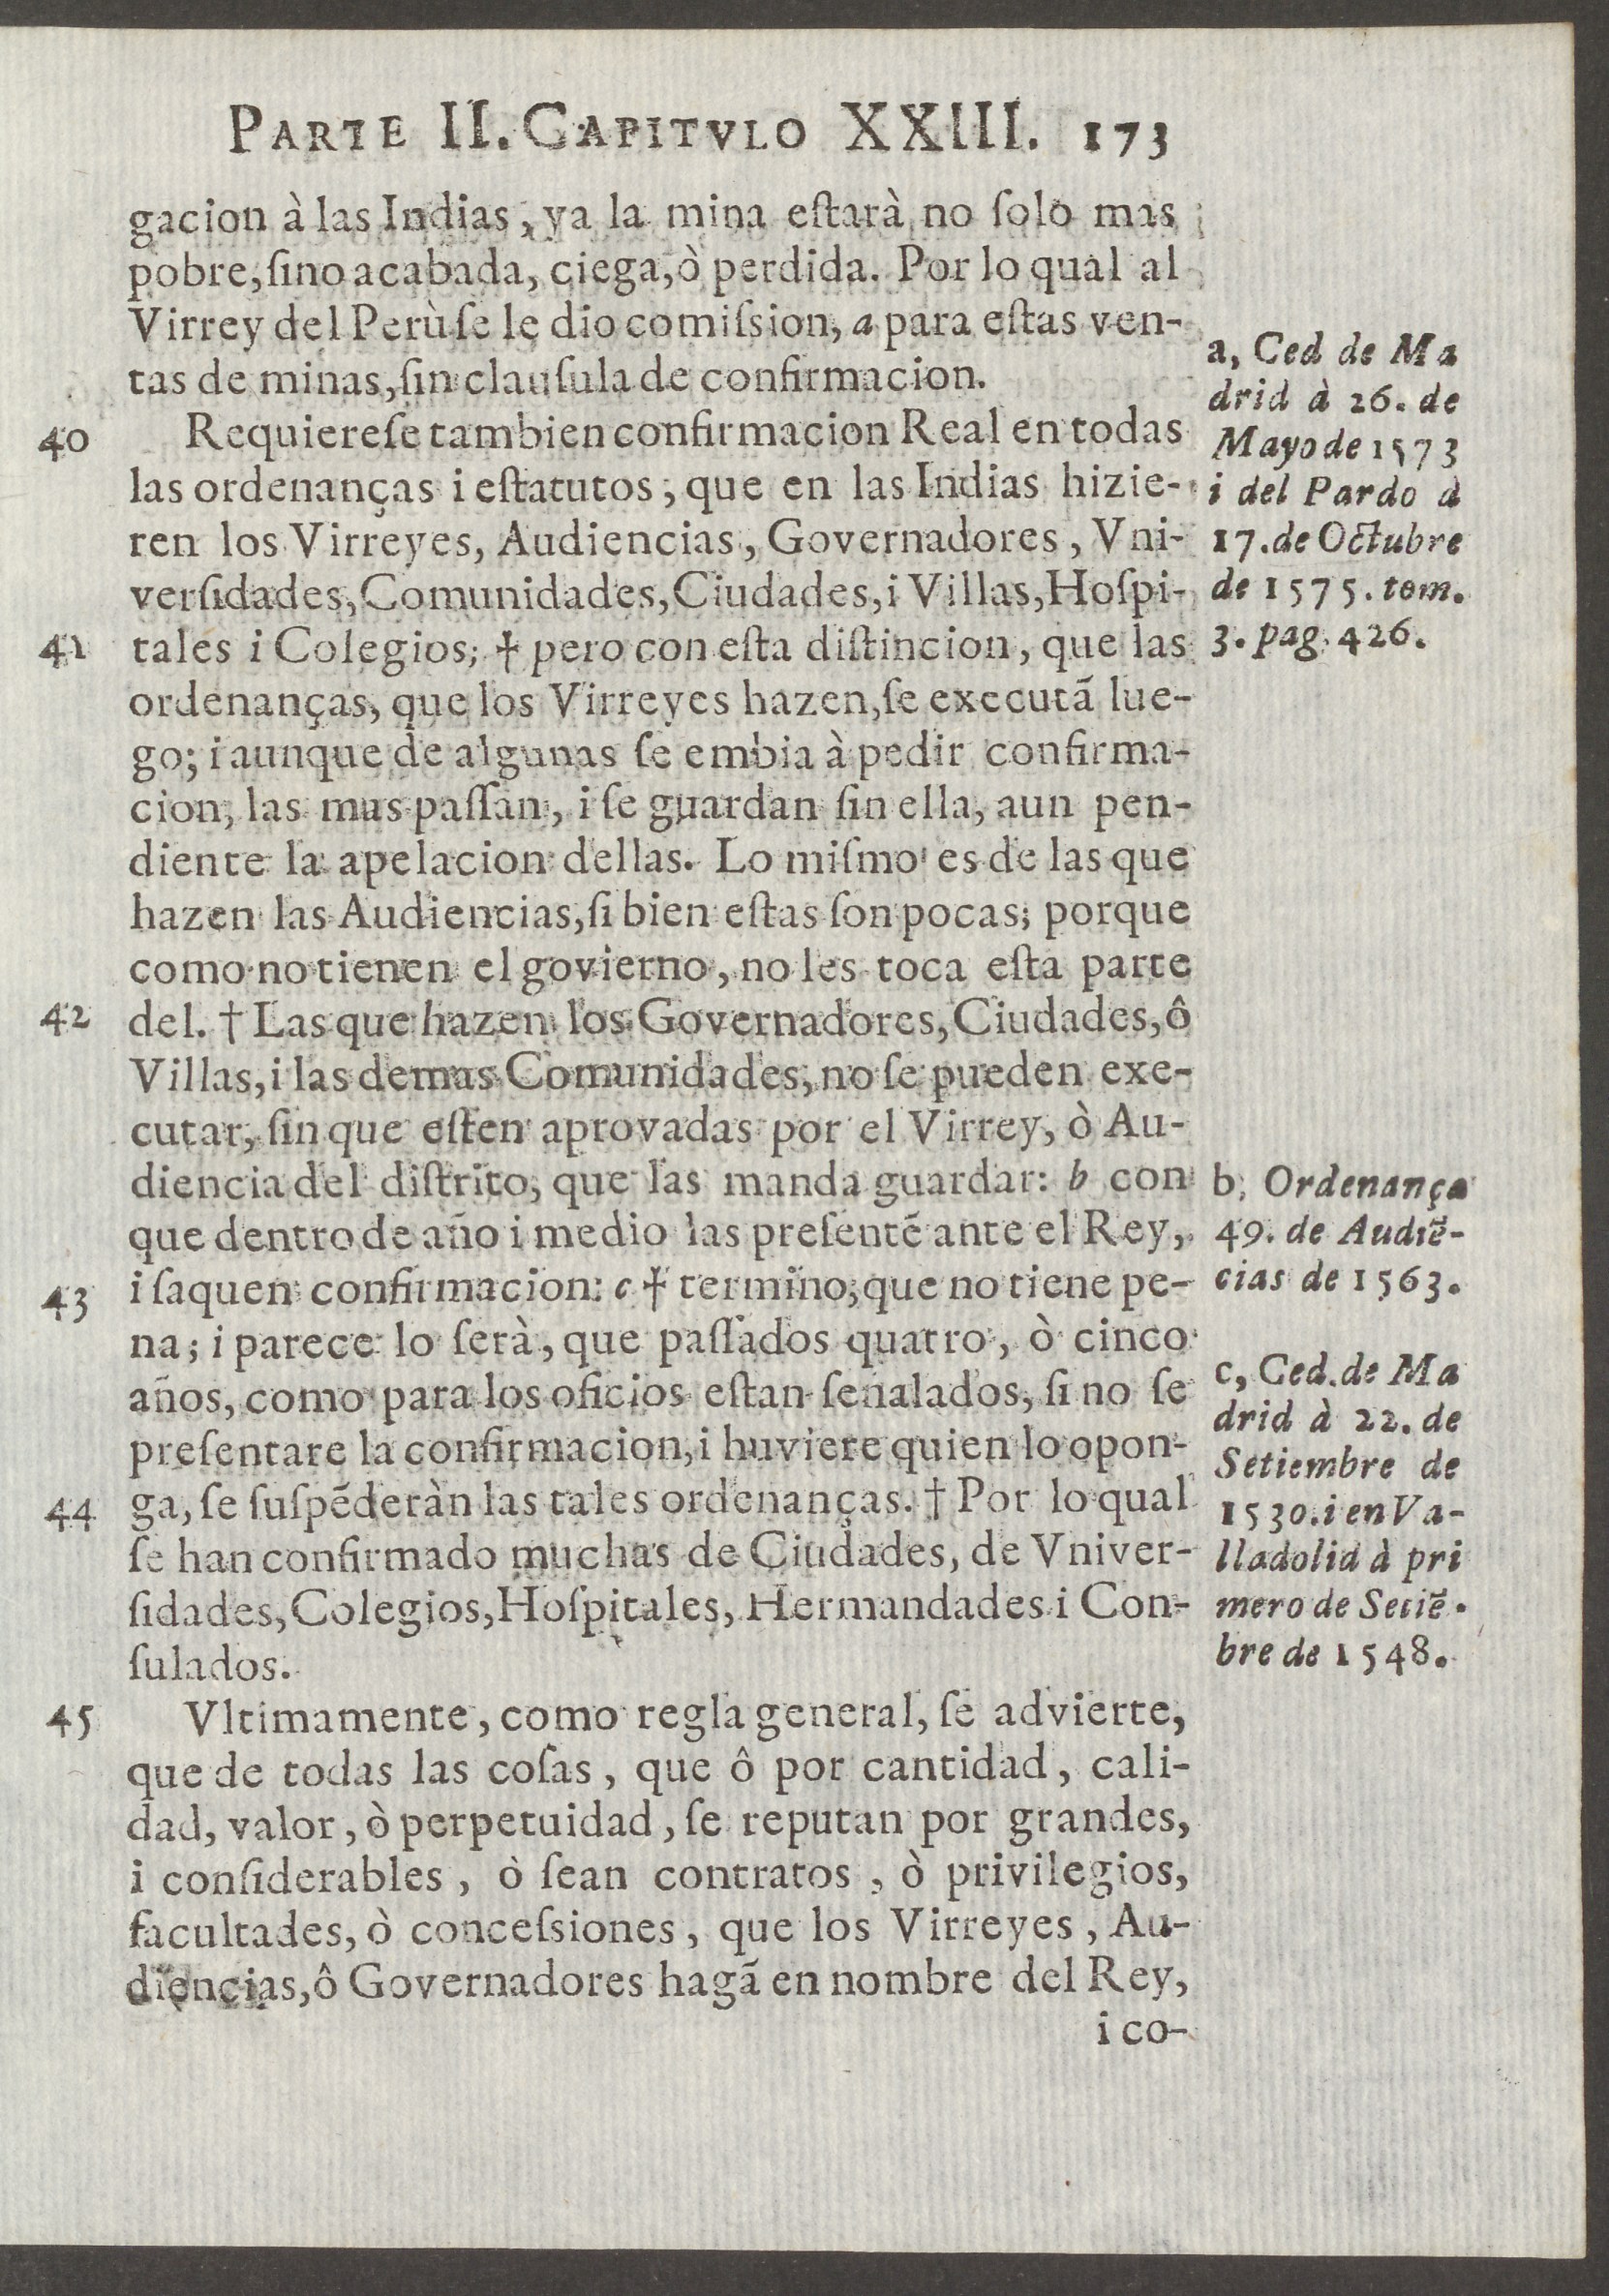 PARTE II. CAPITVLO XXIII. 173
gacion à las Indias, ya la mina eſtarà no ſolo mas
pobre, ſino acabada, ciega, ò perdida. Por lo qual al
Virrey del Perù ſe le dio comiſsion, a para eſtas ven-
tas de minas, ſin clauſula de confirmacion.
40 Requiereſe tambien confirmacion Real en todas
las ordenanças i eſtatutos, que en las Indias hizie-
ren los Virreyes, Audiencias, Governadores, Vni-
verſidades, Comunidades, Ciudades, i Villas, Hoſpi-
41 tales i Colegios; † pero con eſta diſtincion, que las
ordenanças, que los Virreyes hazen, ſe executã lue-
go; i aunque de algunas ſe embia à pedir confirma-
cion, las mas paſſan, i ſe guardan ſin ella, aun pen-
diente la apelacion dellas. Lo miſmo es de las que
hazen las Audiencias, ſi bien eſtas ſon pocas; porque
como no tienen el govierno, no les toca eſta parte
42 del. † Las que hazen los Governadores, Ciudades, ô
Villas, i las demas Comunidades, no ſe pueden exe-
cutar, ſin que eſten aprovadas por el Virrey, ò Au-
diencia del diſtrito, que las manda guardar: b con
que dentro de año i medio las preſentẽ ante el Rey,
43 i ſaquen confirmacion: c † termino, que no tiene pe-
na; i parece lo ſerà, que paſſados quatro, ò cinco
años, como para los oficios eſtan ſeñalados, ſi no ſe
preſentare la confirmacion, i huviere quien lo opon-
44 ga, ſe ſuſpẽderàn las tales ordenanças. † Por lo qual
ſe han confirmado muchas de Ciudades, de Vniver-
ſidades, Colegios, Hoſpitales, Hermandades i Con-
ſulados.
45 Vltimamente, como regla general, ſe advierte,
que de todas las coſas, que ô por cantidad, cali-
dad, valor, ò perpetuidad, ſe reputan por grandes,
i conſiderables, ò ſean contratos, ò privilegios,
facultades, ò conceſsiones, que los Virreyes, Au-
diencias, ô Governadores hagã en nombre del Rey,
i co-
a, Ced de Ma
drid à 26. de
Mayo de 1573
i del Pardo à
17. de Octubre
de 1575. tom.
3. pag. 426.
b, Ordenança
49. de Audiẽ-
cias de 1563.
c, Ced. de Ma
drid à 22. de
Setiembre de
1530. i en Va-
lladolid à pri
mero de Setiẽ-
bre de 1548.